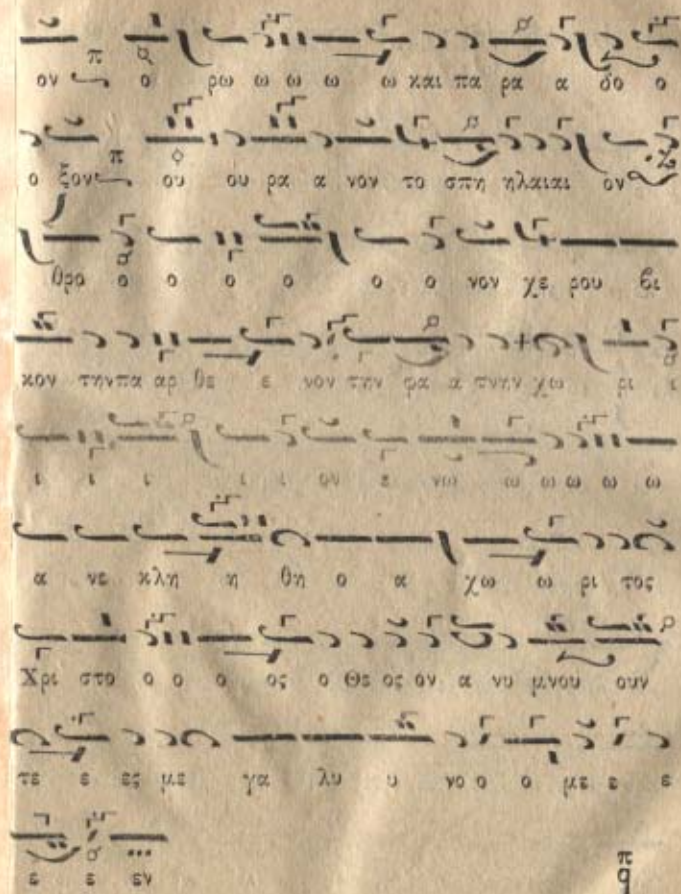 ον π ο ρω ω ω ω ω και πα ρα α δο ο
ο ξον π ου ου ρα α νον το σπη ηλαιαι ον
θρο ο ο ο ο ο ο νον χε ρου βι
κον τηνπα αρ θε ε νον την φα α τνην χω ρι ι
ι ι ι ι ι ου ε νω ω ω ω ω ω
α νε κλη η θη ο α χω ω ρι τος
Χρι στο ο ο ο ος ο Θε ος ον α νυ μνου ουν
τε ε ες με γα λυ υ νο ο ο με ε ε
ε ε εν
π
q